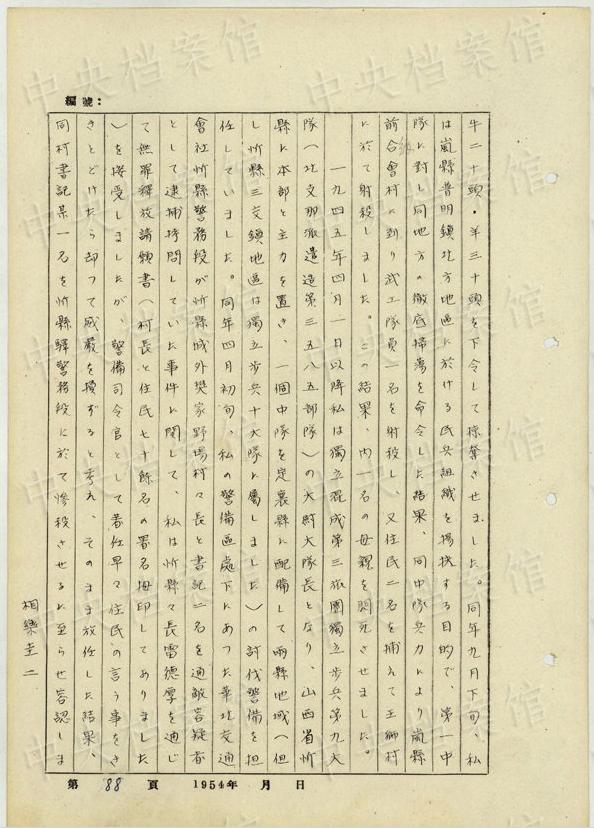 編號：
牛二十頭・羊三十頭を下令して掠奪させました。同年九月下旬、私
は嵐縣普明鎮北方地區に於ける民兵組織を掃挟する目的で、第一中
隊に對し同地方の徹底掃蕩を命令した結果、同中隊兵力により嵐縣
前合會村に到り武工隊員一名を射殺し、又住民二名を捕えて王獅村
に於て射殺しました。この結果、内一名の母親を悶死させました。
一九四五年四月一日以降私は獨立混成第三旅團獨立歩兵第九大
隊（北支那派遣造第三五八五部隊）の大尉大隊長となり、山西省忻
縣に本部と主力を置き、一個中隊を定襄縣に配備して、兩縣地域（但
し忻縣三交鎮地區は獨立歩兵十大隊に屬しました）の討伐警備を担
任していました。同年四月初旬、私の警備區處下にあつた華北交通
會社忻縣警務段が忻縣城外樊家野場村々長と書記二名を通敵容疑者
として逮捕拷問していた事件に関して、私は忻縣々長雷德厚を通じ
て無罪釋放請願書（村長と住民七十餘名の署名拇印してありました
）を接受しましたが、警備司令官として着任早々住民の言う事をき
きとどけたら却つて威嚴を損ずると考え、そのまま放任した結果、
同村書記某一名を忻縣驛警務段に於て惨殺させるに至らせ容認しま
相樂圭二
第 88 頁 1954年 月 日
中央档案馆